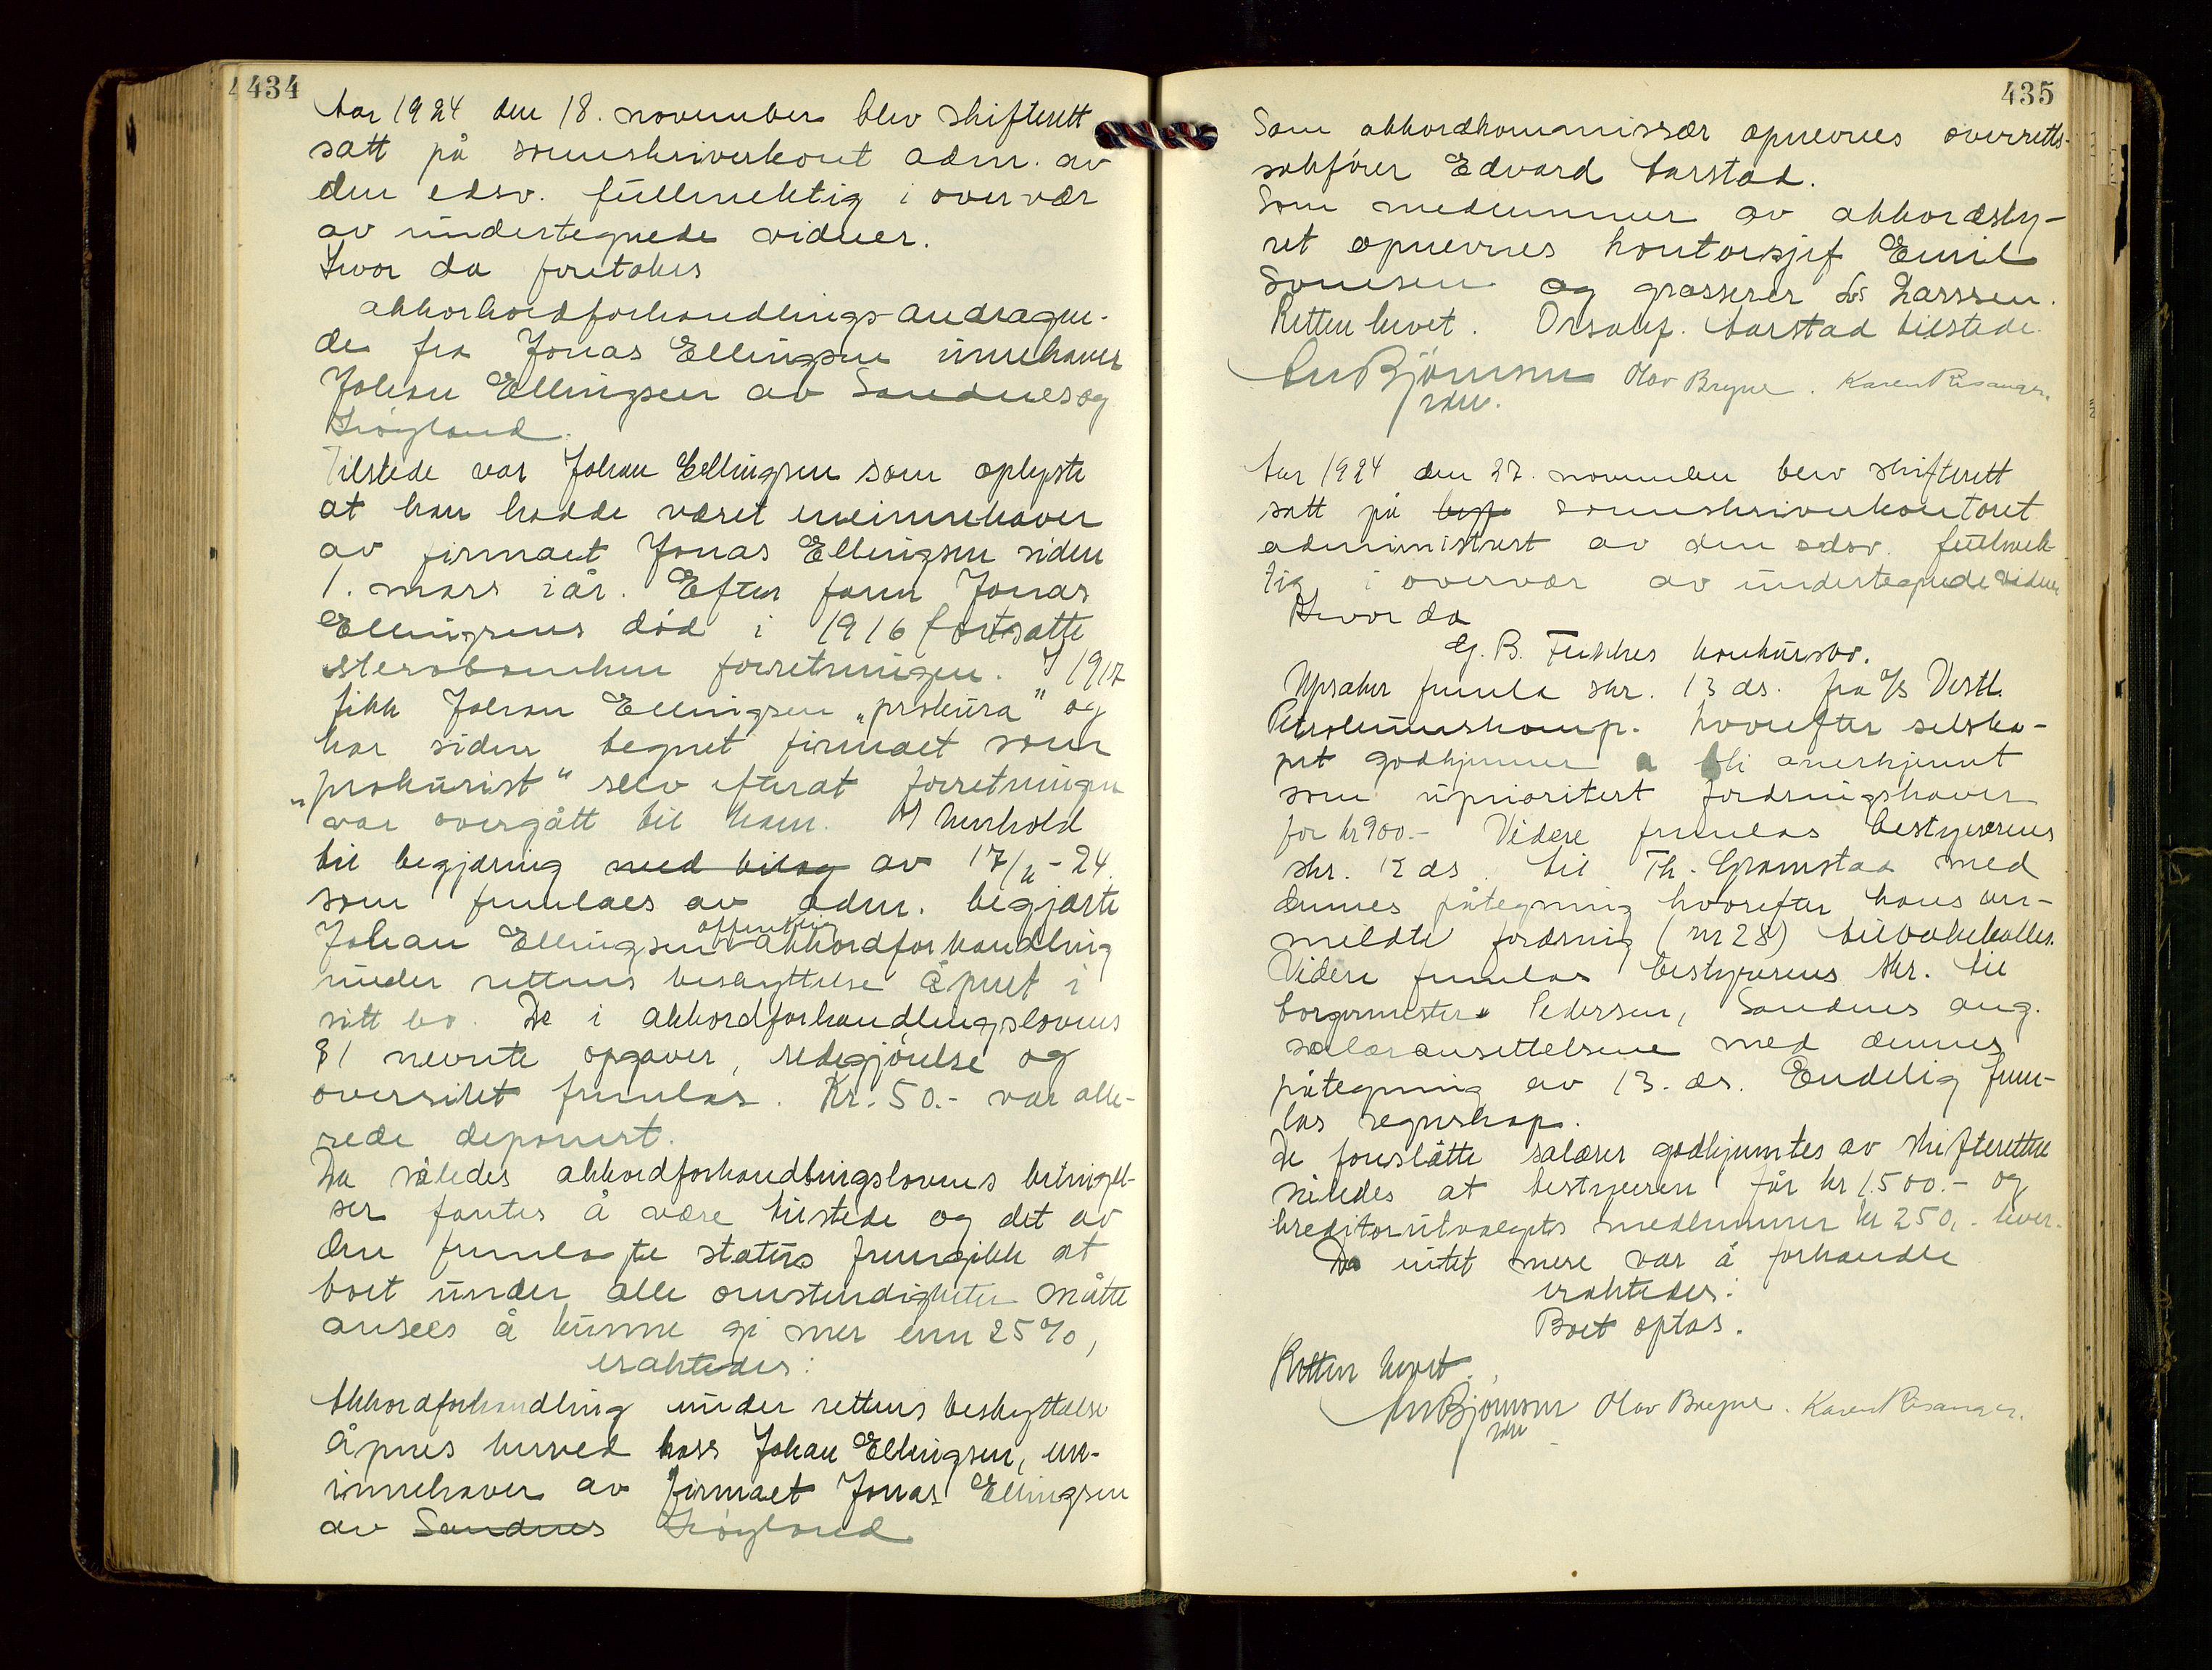 434
Aar 1924 den 18. november blev skifterett
satt på sorenskriverkont adm. av
den edsv. fullmektig i overvær
av undertegnede vidner.
Hvor da foretokes
akkorkordforhandlings-andragen-
de fra Jonas Ellingsen innehaver
Johan Ellingsen av Sandnes og
Høyland.
Tilstede var Johan Ellingsen som oplyste
at han hadde været eneinnehaver
av firmaet Jonas Ellingsen siden
1. mars i år. Efter faren Jonas
Ellingsens død i 1916 fortsatte
stervboenken forretningen. I 1917
fikk Johan Ellingsen „prokura" og
har siden tegnet firmaet som
„prokurist" selv efterat forretningen
var overgått til ham. I henhold
til begjæring med bilag av 17/11-24.
som fremlaes av adm. begjærte
Johan Ellingsen offentlig akkordforhandling
under rettens beskyttelse åpnet i
sitt bo. De i akkordforhandlingslovens
§1 nevnte opgaver, redegjørelse og
oversikt fremlas. Kr. 50.- var alle-
rede deponert.
Da således akkordforhandlingslovens betingel-
ser fantes å være tilstede og det av
den fremlagte status fremgikk at
boet under alle omstendigheter måtte
ansees å kunne gi mer enn 25%,
eraktedes:
Akkordforhandling under rettens beskyttelse
åpnes herved hoss Johan Ellingsen, ene-
innehaver av firmaet Jonas Ellingsen
av Sandnes Høyland
435
Som akkordkommissær opnevnes overretts-
sakfører Edvard Aarstad.
Som medlemmer av akkordsty-
ret opnevnes kontorsjef Emil
Sømsen og grosserer Ls Larssen.
Retten hevet. Orsakf. Aarstad tilstede.
An Bjørnson Olav Bryne. Karen Risanger.
edsv.
Aar 1924 den 27. november blev skifterett
satt på sorenskriverkontoret
administrert av den edsv. fullmek
tig i overvær av undertegnede vidner
Hvor da
G. B. Fukkes konkursbo.
Upsaker fremla skr. 13 ds. fra A/S Vestl.
Petroleumskomp. hvorefter selska-
pet godkjenner å bli anerkjennt
som uprioritert fordringshaver
for kr 900.- Videre fremlas bestyrerens
skr. 12 ds. til Th. Gramstad med
dennes påtegning hvorefter hans an-
meldte fordring (nr 28) tilbakekalles.
Videre fremlas bestyrerens skr. til
borgermester Pedersen, Sandnes ang.
salæransettelsene med dennes
påtegning av 13. ds. Endelig frem-
las regnskap.
De foreslåtte salærer godkjentes av skifteretten
således at bestyreren får kr 1.500.- og
kreditorutvalgets medlemmer kr 250,- hver.
Da intet mere var å forhandle
eraktedes:
Boet optas.
Retten hevet.
An Bjørnson Olav Bryne. Karen Risanger.
edsv